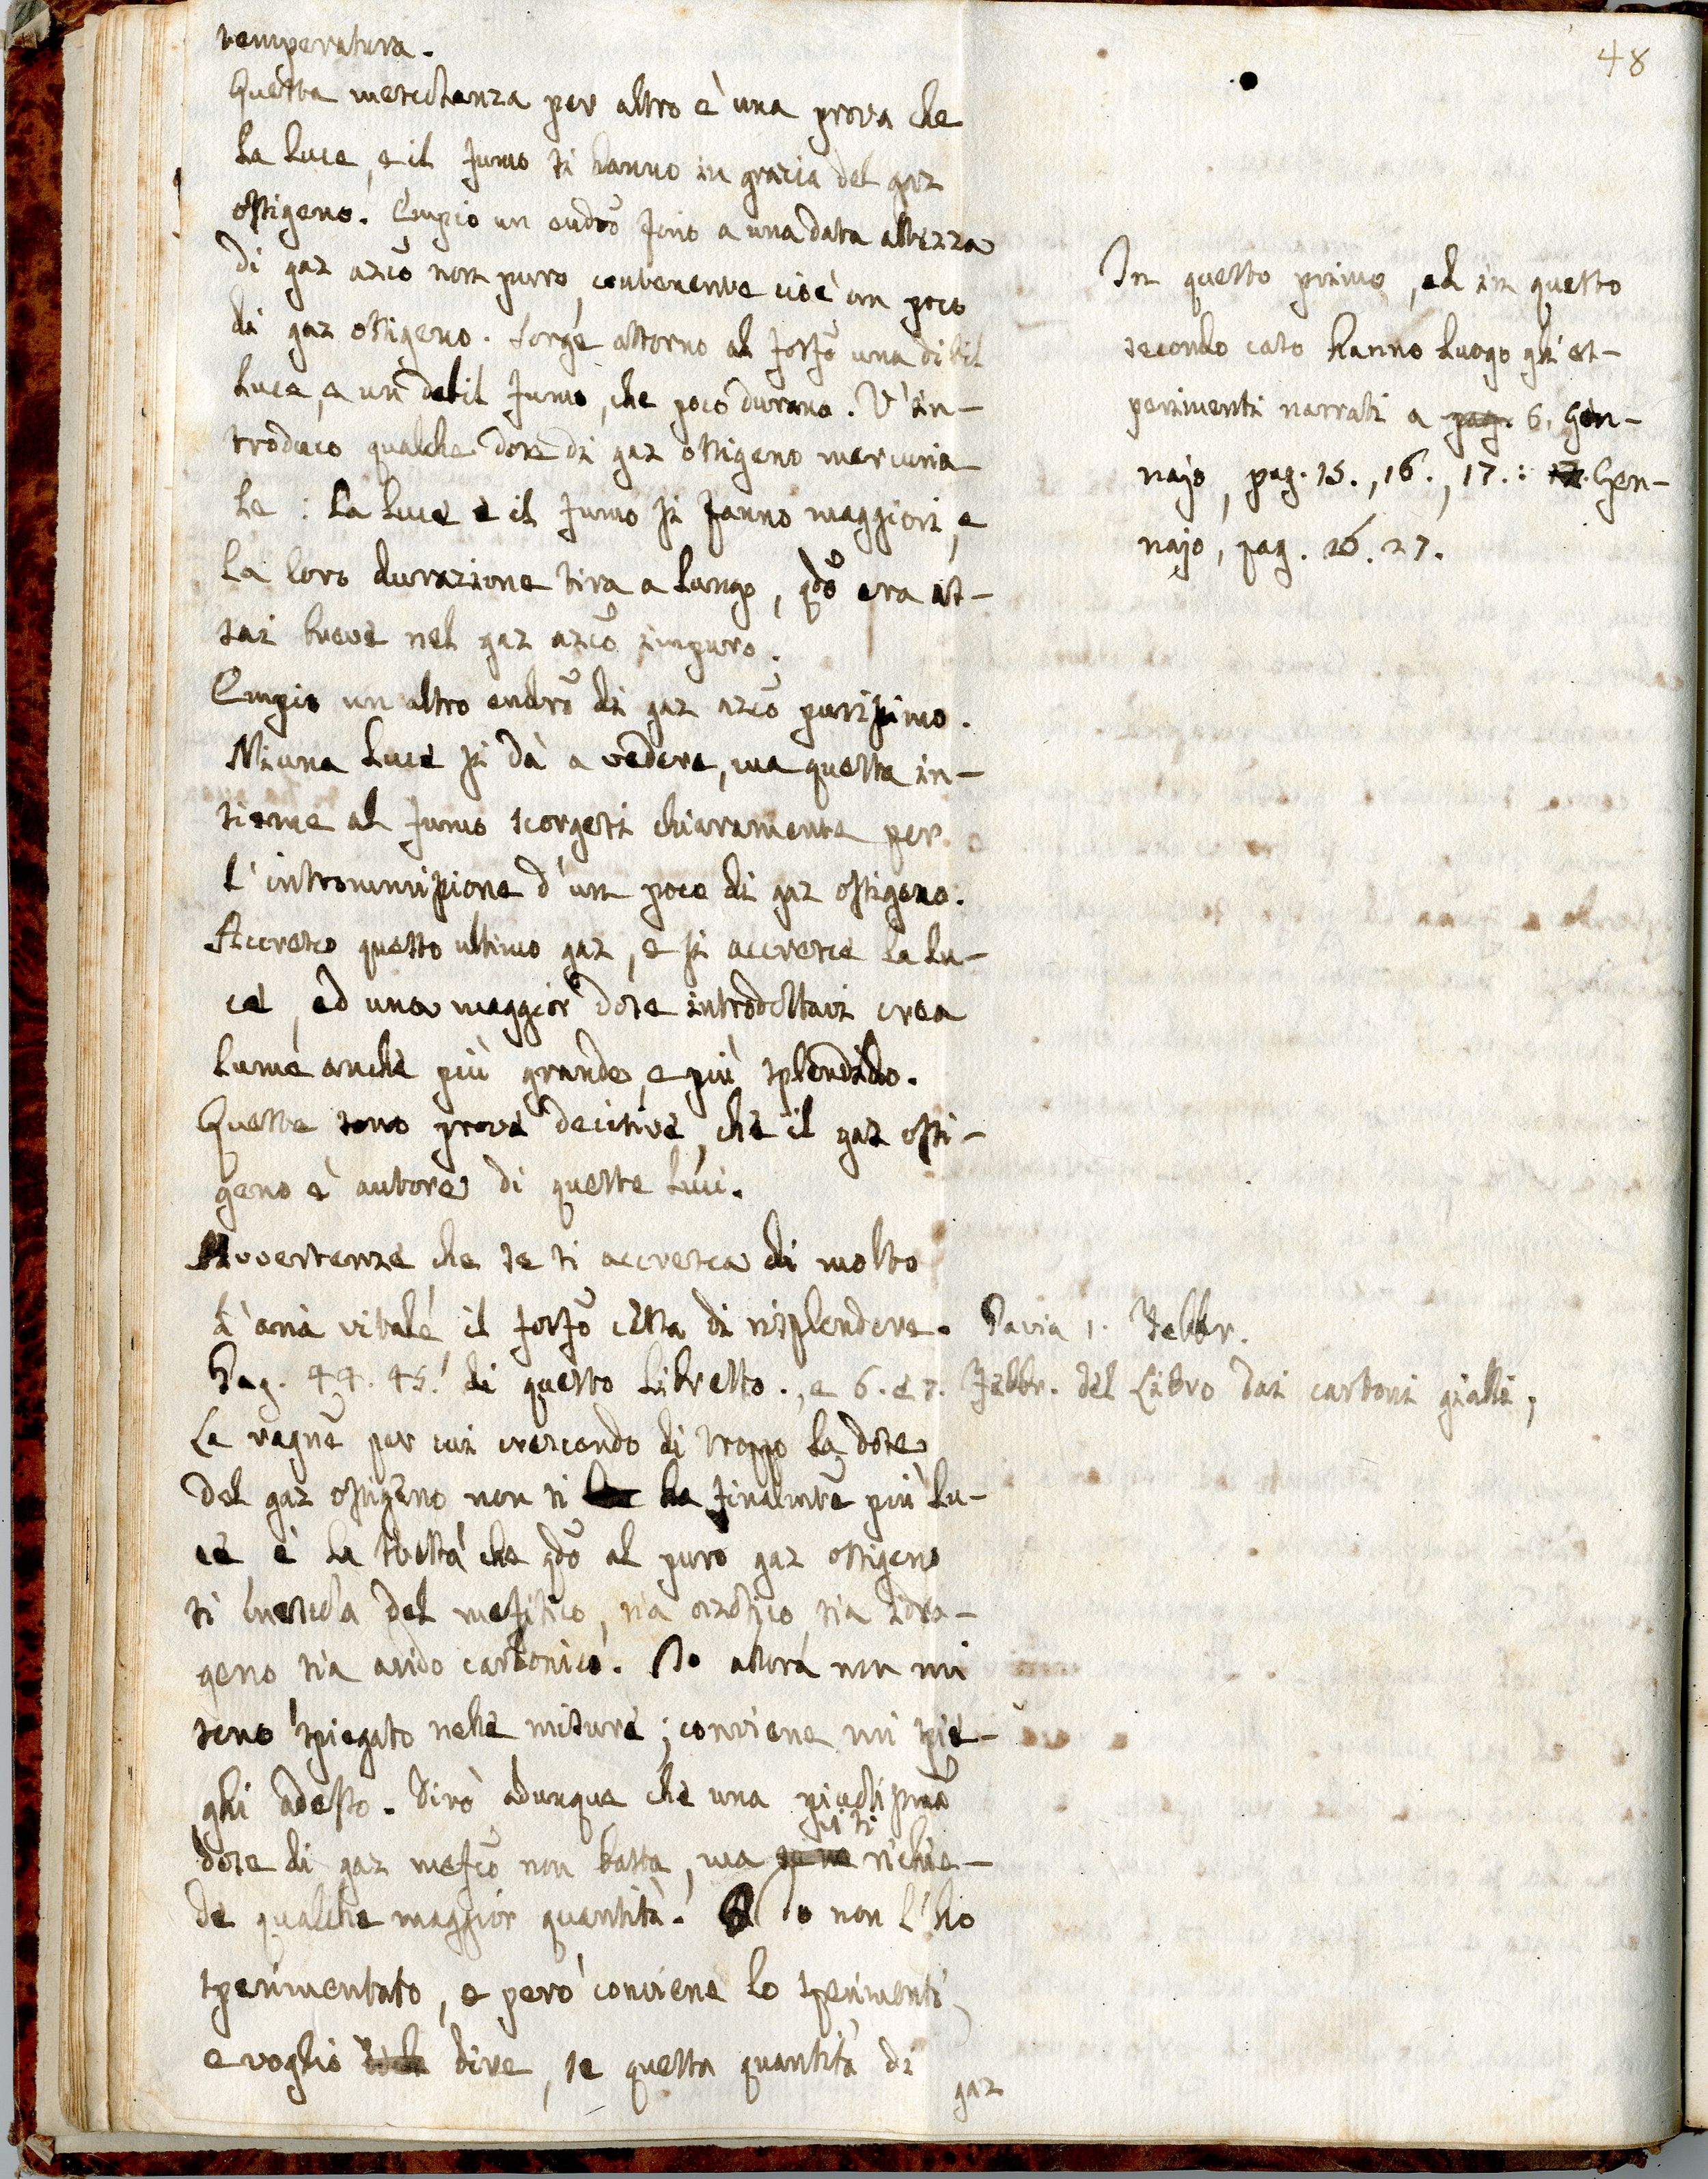 48
temperatura.
Questa mescolanza per altro è una prova che
la luce, e il fumo si hanno in grazia del gaz
ossigeno. Empio un eudrõ fino a una data altezza
di gaz azcõ non puro, contenente cioè un poco
di gaz ossigeno. Sorge attorno al fosfõ una debil
luce, e un debil fumo, che poco durano. V'in-
troduco qualche dose di gaz ossigeno mercuria-
le: la luce e il fumo si fanno maggiori, e
la loro durazione tira a lungo, qdõ era as-
sai breve nel gaz azcõ impuro.
Empio un altro eudrõ di gaz azcõ purissimo.
Niuna luce si dà a vedere, ma questa in-
sieme al fumo scorgesi chiaramente per
l'intromissione d'un poco di gaz ossigeno.
Accresco questo ultimo gaz, e si accresce la lu-
ce, ed una maggior dose introdottavi crea
lume anche più grande, e più splendido.
Queste sono prove decisive, che il gaz ossi-
geno è autore di queste luci.
Avvertenze che se si accresca di molto
l'aria vitale, il fosfõ cessa di risplendere. Pavia 1. Febbr.
Pag. 44. 45. di questo libretto., e 6. e 7. Febbr. del Libro dai cartoni gialli,
La ragnẽ per cui crescendo di troppo la dose
del gaz ossigeno non si ha finalmtẽ più lu-
ce, è la stessa che qdõ al puro gaz ossigeno
si mescola del mefitico, sia azotico, sia idro-
geno sia acido carbonico. Io allora non mi
sono spiegato nelle misure; conviene mi spie-
ghi adesso. Dirò adunque che una piccolissmã
dose di gaz mefcõ non basta, ma vi si richie-
de qualche maggior quantità. Io non l'ho
sperimentato, e però conviene lo sperimenti,
e voglio dire, se questa quantità di
gaz
In questo primo, ed in questo
secondo caso hanno luogo gli es-
perimenti narrati a pag. 6. Gen-
najo, pag. 15., 16., 17.: Gen-
najo, pag. 26. 27.